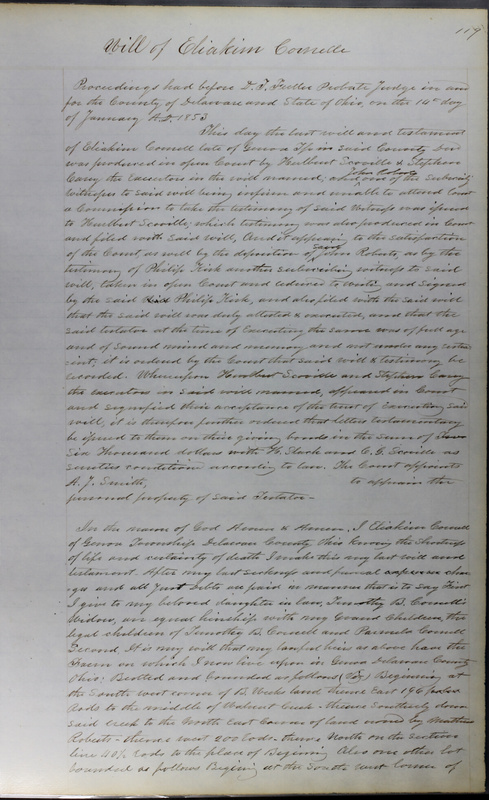 119
Will of Eliakim Cornell
Proceedings had before D. T. Fuller Probate Judge in and
for the County of Delaware and State of Ohio, on the 14th day
of January A.D. 1853
This day the last will and testament
of Eliakim Cornell late of Genoa Tp in said County
was produced in open Court by Hurlbert Scoville & Stephen
Cary the Executors in the will named, and John Roberts one of the subscribing
witnesses to said will being infirm and unable to attend Court
a Commission to take the testimony of said witness was issued
to Hurlbert Scoville; which testimony was also produced in Court
and filed with said will, And it appearing to the satisfaction
of the Court, as well by the deposition of said John Roberts, as by the
testimony of Philip Kirk another subscribing witness to said
will, taken in open Court and reduced to writing and signed
by the said Philip Kirk, and also filed with the said will
that the said will was duly attested & executed, and that the
said testator at the time of Executing the same was of full age
and of sound mind and memory, and not under any restr
aint; it is ordered by the Court that said will & testimony be
recorded. Whereupon Hurlbert Scoville and Stephen Cary
the executors in said will named, appeared in Court
and signified their acceptance of the trust of Executing said
will, it is therefore further ordered that letters testamentary
be issued to them on their giving bonds in the sum of
Six Thousand dollars with and C. G. Scoville as
sureties conditioned according to law. The Court appoints
A. J. Smith, to appraise the
personal property of said Testator -
In the name of God Amen & Amen, I Eliakim Cornell
of Genoa Township Delaware County Ohio knowing the shortness
of life and certainty of death I make this my last will and
testament. After my last sickness and funeral expenses char
ges and all just debts are paid in manner that is to say First
I give to my beloved daughter in law, Timothy B. Cornell's
Widow, an equal heirship with my Grand Children, the
legal children of Timothy B. Cornell and Parmela Cornell
Second It is my will that my lawful heirs as above have the
Farm on which I now live upon in Genoa Delaware County
Ohio; Beotted and bounded as follows Beginning at
the South west corner of B. Weeks land thence East 196
Rods to the middle of Walnut Creek - thence Southerly down
said creek to the North East Corner of land owned by Matthew
Roberts - thence west 200 rods - thence North on the section
line 40½ rods to the place of Beginning Also one other lot
bounded as follows Begining at the South west corner of